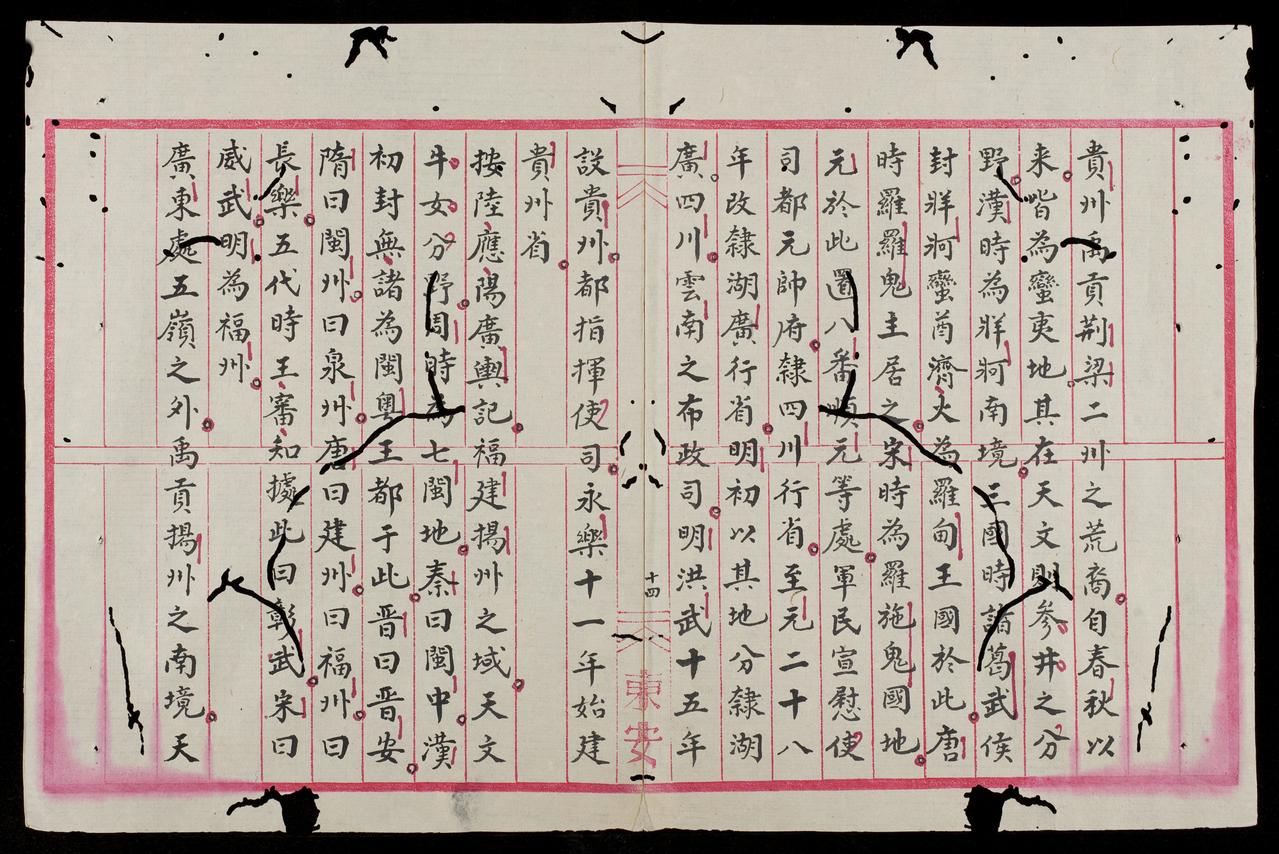 貴州禹貢荆梁二州之荒裔自春秋以
来皆為蠻夷地其在天文則參井之分
野漢時為牂牁南境三國時諸葛武侯
封牂牁蠻酋濟火為羅甸王國於此唐
時羅羅鬼主居之宋時為羅施鬼國地
元於此置八番順元等處軍民宣慰使
司都元帥府隸四川行省至元二十八
年改隸湖廣行省明初以其地分隸湖
廣四川雲南之布政司明洪武十五年
十四
東安
設貴州都指揮使司永樂十一年始建
貴州省
按陸應陽廣輿記福建揚州之域天文
牛女分野周時為七閩地秦曰閩中漢
初封無諸為閩粵王都于此晋曰晋安
隋曰閩州曰泉州唐曰建州曰福州曰
長樂五代時王審知據此曰彰武宋曰
威武明為福州
廣東處五嶺之外禹貢揚州之南境天